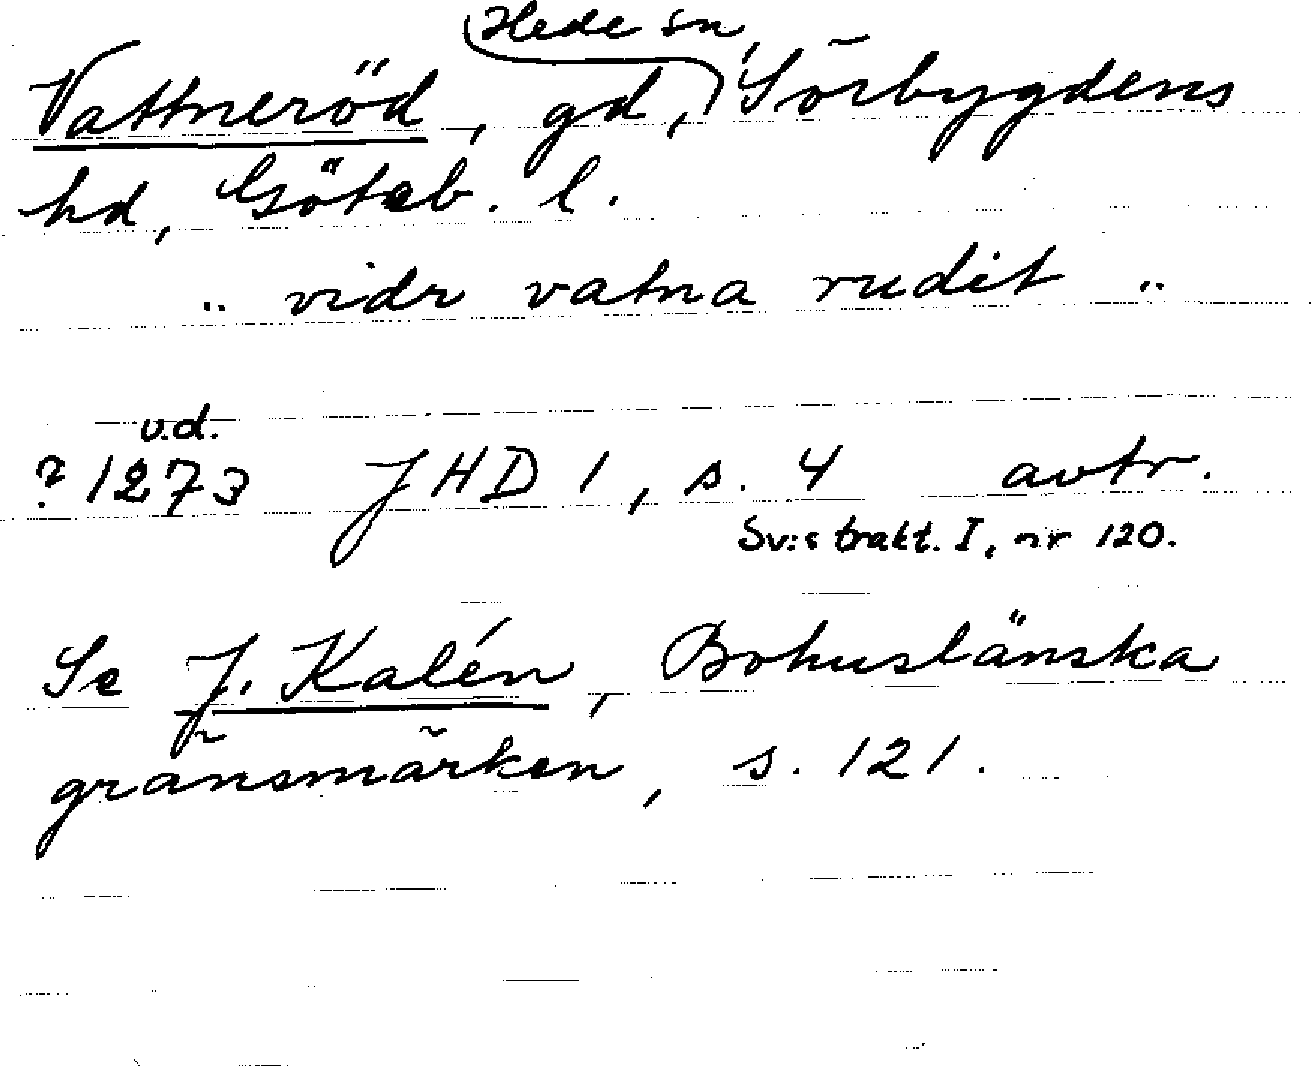 Hede sn,
Vattneröd, gd, Sörbygdens
hd, Göteb. l.
.. vidr vatna rudit ..
u.d.
? 1273 JHD 1, s. 4 avtr.
Sv:s trakt. I, nr 120.
Se J. Kalén, Bohuslänska
gränsmärken, s. 121.